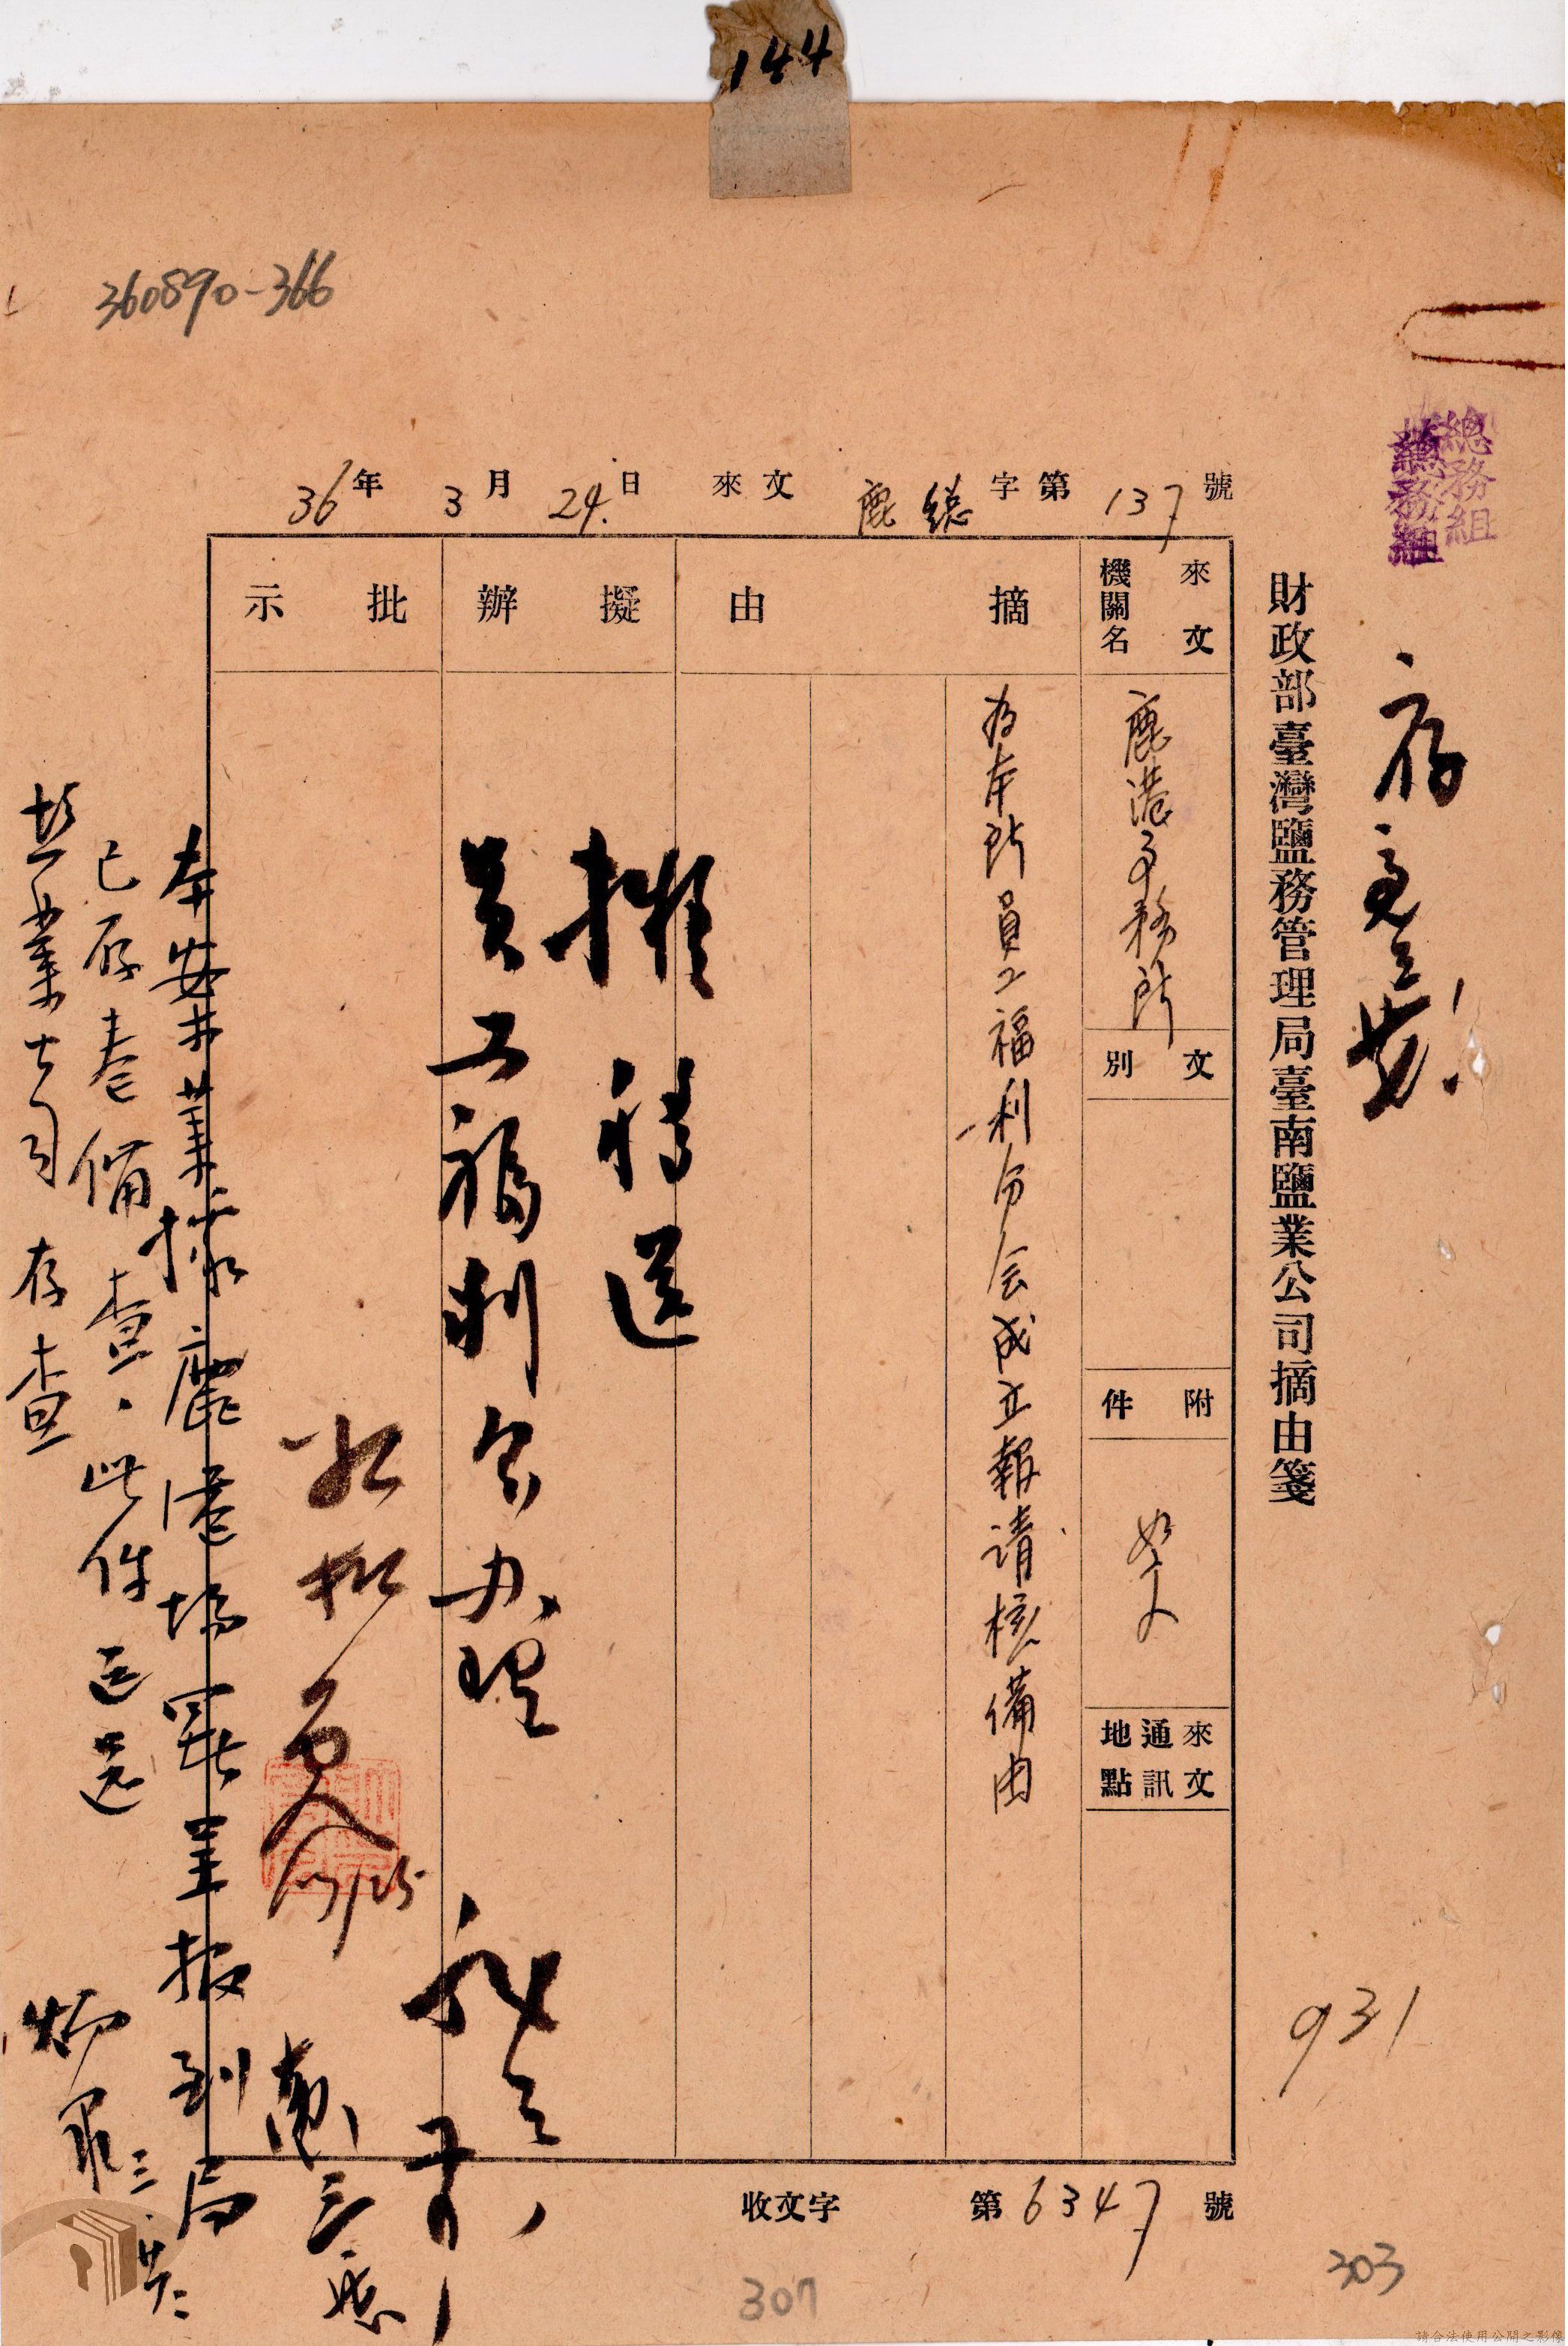 144
360890-366
總務組
總務組
存
財政部臺灣鹽務管理局臺南鹽業公司摘由箋
36年3月24日 來文 鹿總字第137號
來文機關名
鹿港事務所
文別
附件
如文
來文通訊地點
摘由
為本所員工福利分会成立報请核備由
擬辦
擬移送
員工福利会办理
批示
如擬
3/25
本案業據鹿港場署呈报到局
已存卷備查、此件送還
盐業公司存查
931
收文字第6347號
307
303
請合法使用公開之影像